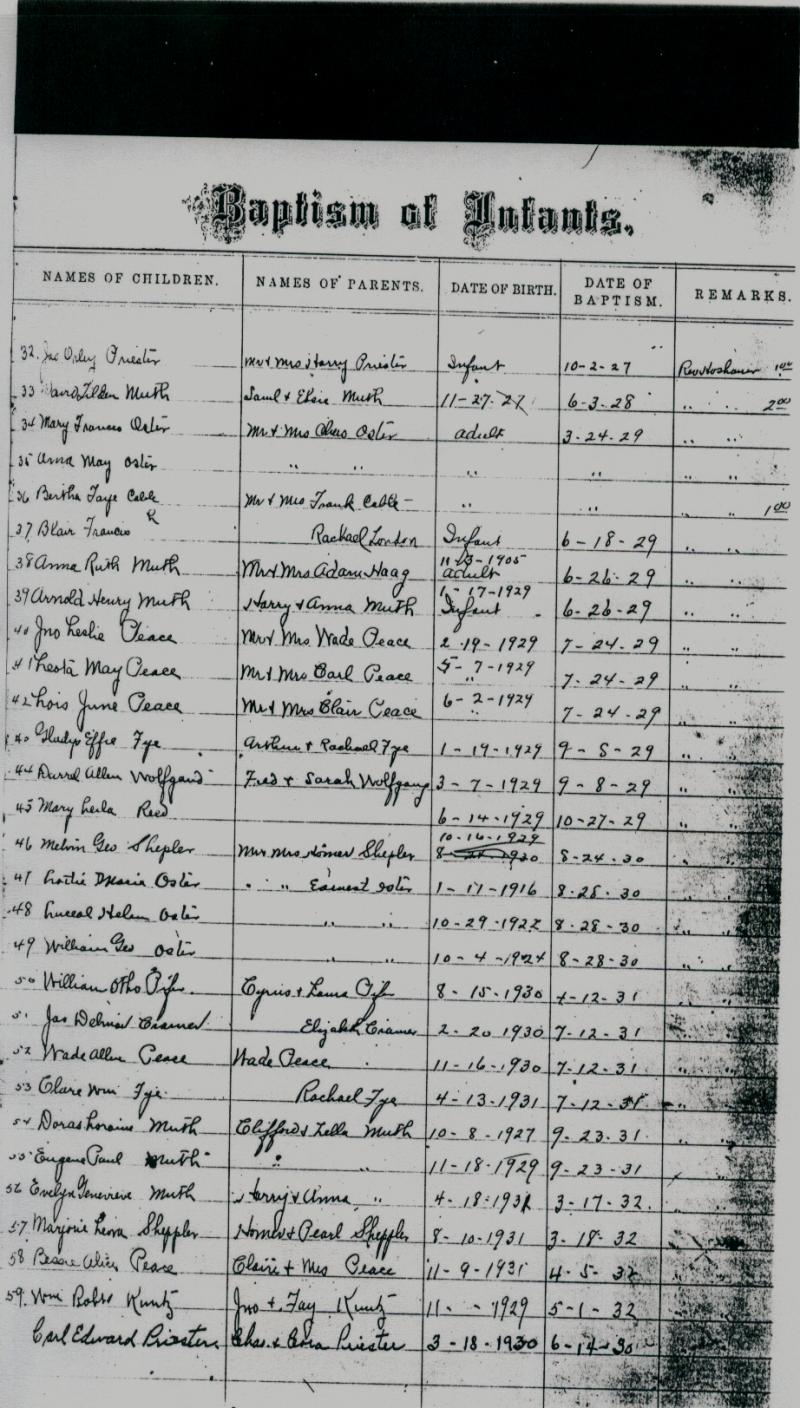 Baptism of Infants.
NAMES OF CHILDREN. NAMES OF PARENTS. DATE OF BIRTH. DATE OF BAPTISM. REMARKS.
32. Jno Orley Priester Mr & Mrs Harry Priester Infant 10-2-27 Rev Hoshauer 1.00
33 Muth Saml & Elsie Muth 11-27-27 6-3-28 " " 2.00
34 Mary Frances Oster Mr & Mrs Chas Oster adult 3-24-29 " "
35 Anna May Oster " " " " " "
36 Bertha Faye Cable Mr & Mrs Frank Cable - " " " " 1.00
37 Blair Francis Rachael London Infant 6-18-29 " "
38 Anna Ruth Muth Mr & Mrs Adam Haag 11-23-1905 adult 6-26-29 " "
39 Arnold Henry Muth Harry & Anna Muth 1-17-1929 Infant 6-26-29 " "
40 Jno Leslie Peace Mr & Mrs Wade Peace 2-19-1929 7-24-29 " "
41 Leota May Peace Mr & Mrs Carl Peace 5-7-1929 " 7-24-29 " "
42 Lois June Peace Mr & Mrs Clair Peace 6-2-1929 " 7-24-29 " "
Gladys Effie Fye Arthur & Rachael Fye 1-19-1929 9-5-29 " "
44 Durrel Allen Wolfgang Fred & Sarah Wolfgang 3-7-1929 9-8-29 " "
45 Mary Leila Reed 6-14-1929 10-27-29 " "
46 Melvin Geo Shepler Mr Mrs Homer Shepler 10-16-1929 8-24-30 " "
47 Marie Oster " " Earnest Oster 1-17-1916 8-28-30 " "
48 Helen Oster " " 10-29-1922 8-28-30 " "
49 William Geo Oster " " 10-4-1924 8-28-30 " "
50 William Otho Cyrus & Laura 8-15-1930 -12-31 " "
51 Jas Delmar Cramer Elizabeth Cramer 2-20-1930 7-12-31 " "
52 Wade Allen Peace Wade Peace 11-16-1930 7-12-31 " "
53 Clare Wm Fye Rachael Fye 4-13-1931 7-12-31 " "
54 Doras Loraine Muth Clifford & Zella Muth 10-8-1927 9-23-31 " "
55 Eugene Paul Muth " " 11-18-1929 9-23-31 "
56 Evelyn Genevieve Muth Harry & Anna " 4-18-1931 3-17-32.
57 Marjorie Leora Sheppler Homer & Pearl Sheppler 8-10-1931 3-18-32
58 Bessie Alice Peace Claire & Mrs Peace 11-9-1931 4-5-32
59. Wm Kuntz Jno & Fay Kuntz 11- -1929 5-1-32
Carl Edward Priester Chas. & Priester 3-18-1930 6-14-30